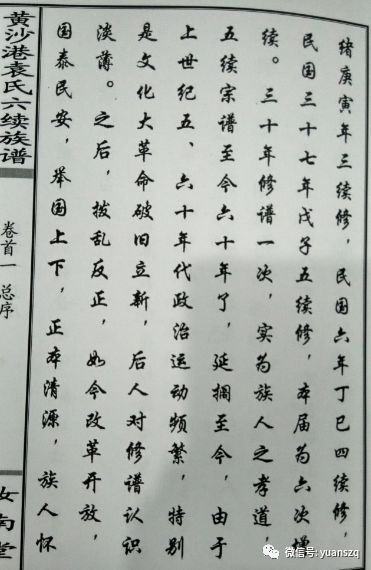 绪庚寅年三续修，民国六年丁巳四续修，
民国三十七年戊子五续修，本届为六次增
续。三十年修谱一次，实为族人之孝道，
五续宗谱至今六十年了，延搁至今，由于
上世纪五、六十年代政治运动频繁，特别
是文化大革命破旧立新，后人对修谱认识
淡薄。之后，拨乱反正，如今改革开放，
国泰民安，举国上下，正本清源，族人怀
黄沙港袁氏六续族谱
卷首一 总序
汝南堂
微信号: yuanszq